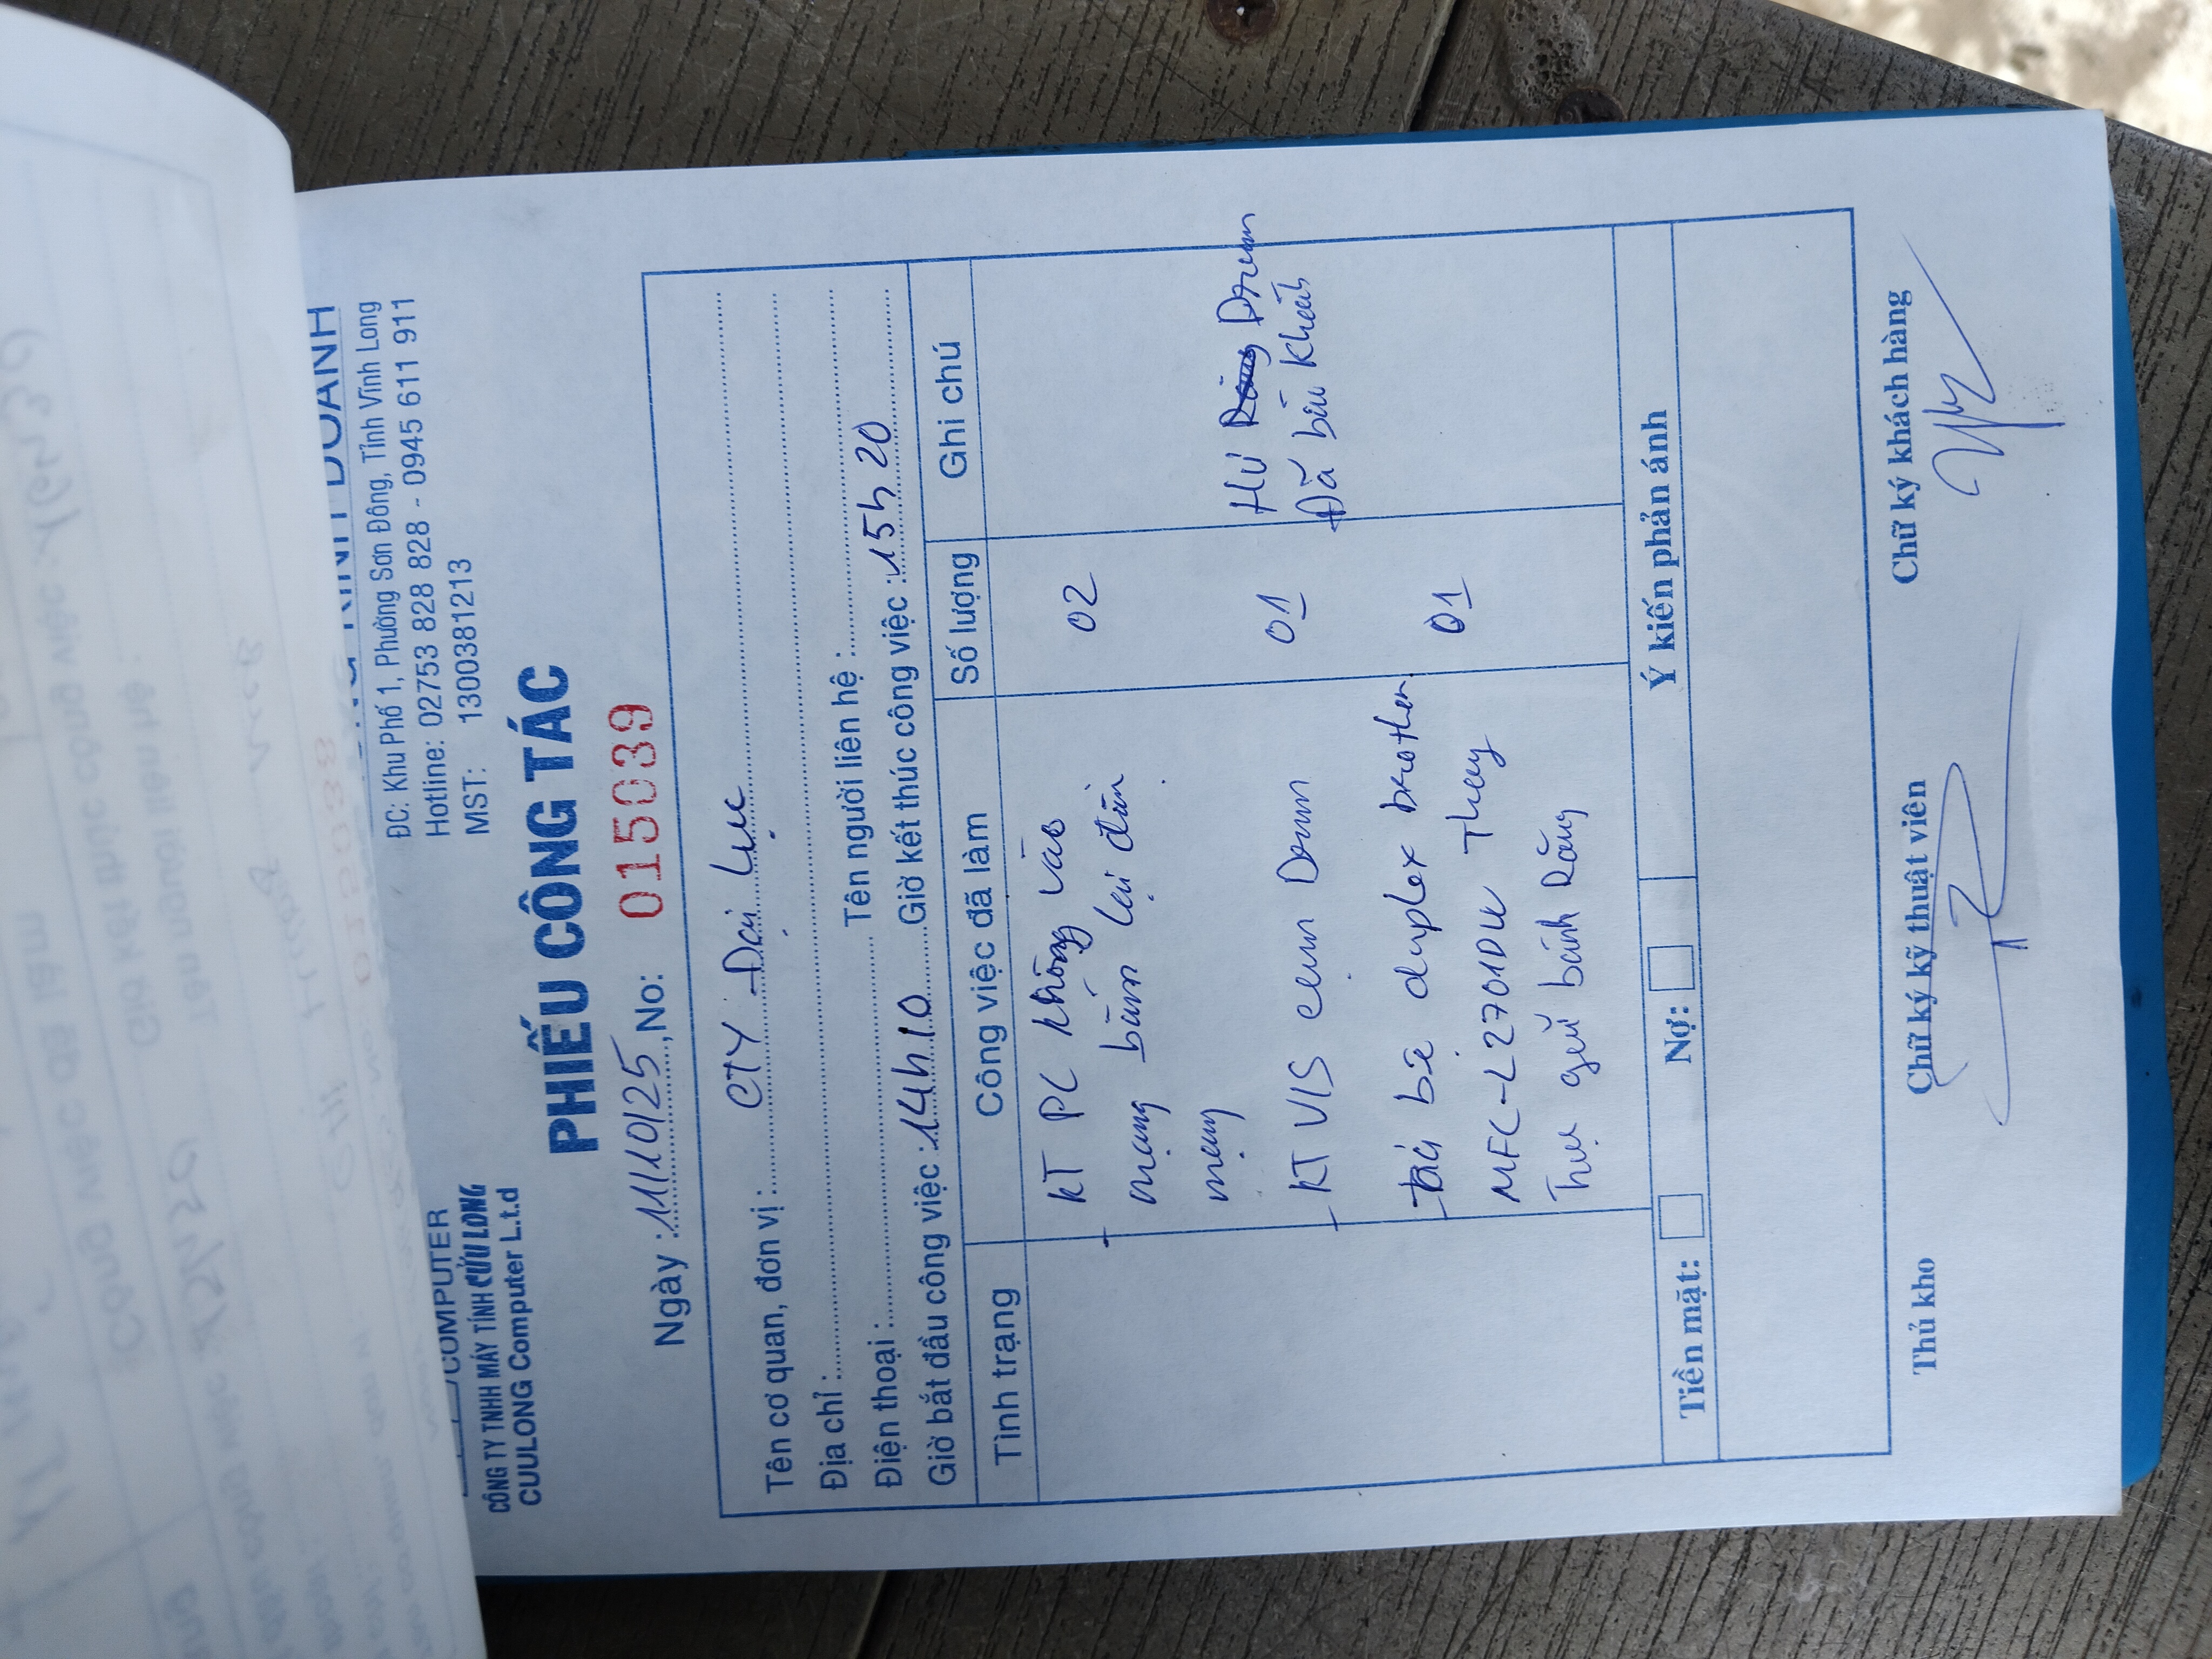 COMPUTER
CÔNG TY TNHH MÁY TÍNH CỬU LONG
CUULONG Computer L.t.d
KINH DOANH
ĐC: Khu Phố 1, Phường Sơn Đông, Tỉnh Vĩnh Long
Hotline: 02753 828 828 - 0945 611 911
MST: 1300381213
PHIẾU CÔNG TÁC
Ngày : 11/10/25, No: 015039
Tên cơ quan, đơn vị : CTY Đại Lục
Địa chỉ :
Điện thoại : Tên người liên hệ :
Giờ bắt đầu công việc : 14h10 Giờ kết thúc công việc : 15h20
Tình trạng Công việc đã làm Số lượng Ghi chú
- KT PC không vào 02
mạng bấm lại đầu
mạng
- KT VIS cụm Drum 01 Hư Drum
Đã báo khách
- bộ duplex brother 01
MFC-L2701DW Thay
gửi bánh Răng
Tiền mặt: Nợ: Ý kiến phản ánh
Thủ kho Chữ ký kỹ thuật viên Chữ ký khách hàng